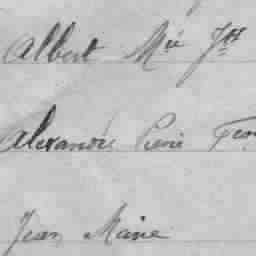 Albert Mie Jph
Alexandre Pierre Fer
Jean Marie